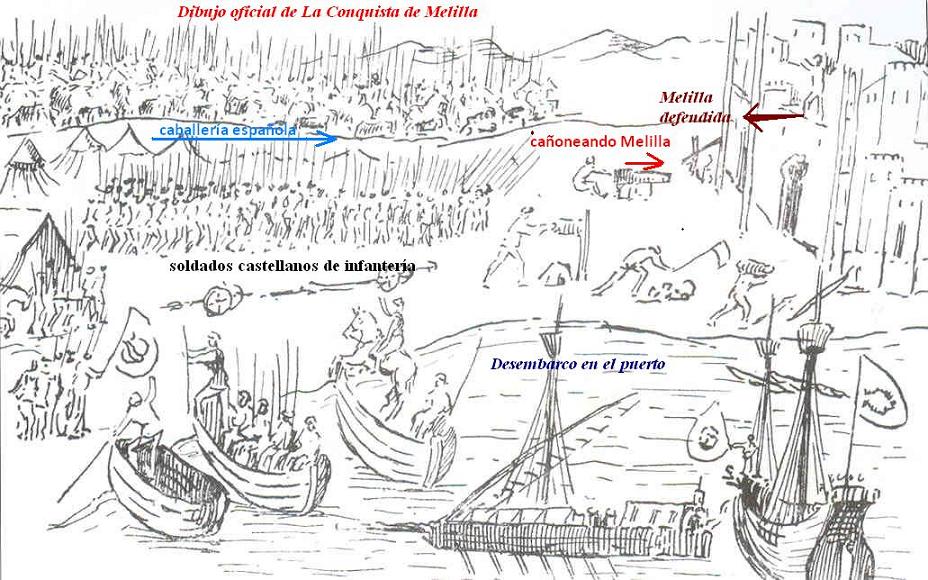 Dibujo oficial de La Conquista de Melilla
Melilla
defendida
caballería española
cañoneando Melilla
soldados castellanos de infantería
Desembarco en el puerto